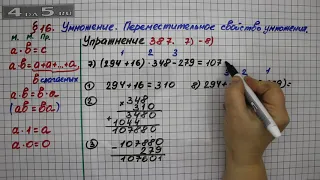 4 на 5.RU
§16. Умножение. Переместительное свойство умножения.
М. М. Пр.
a·b=c
a·b=a+a+...+a
в слагаемых
a·b=b·a
(ab=ba)
a·1=a
a·0=0
Упражнение 387. 7)-8)
1 2 3
7) (294+16)·348-279=107
2 1
① 294+16=310
8) 294+
279)=
② ×348
310
3480
+1044
107880
③ -107880
279
107601